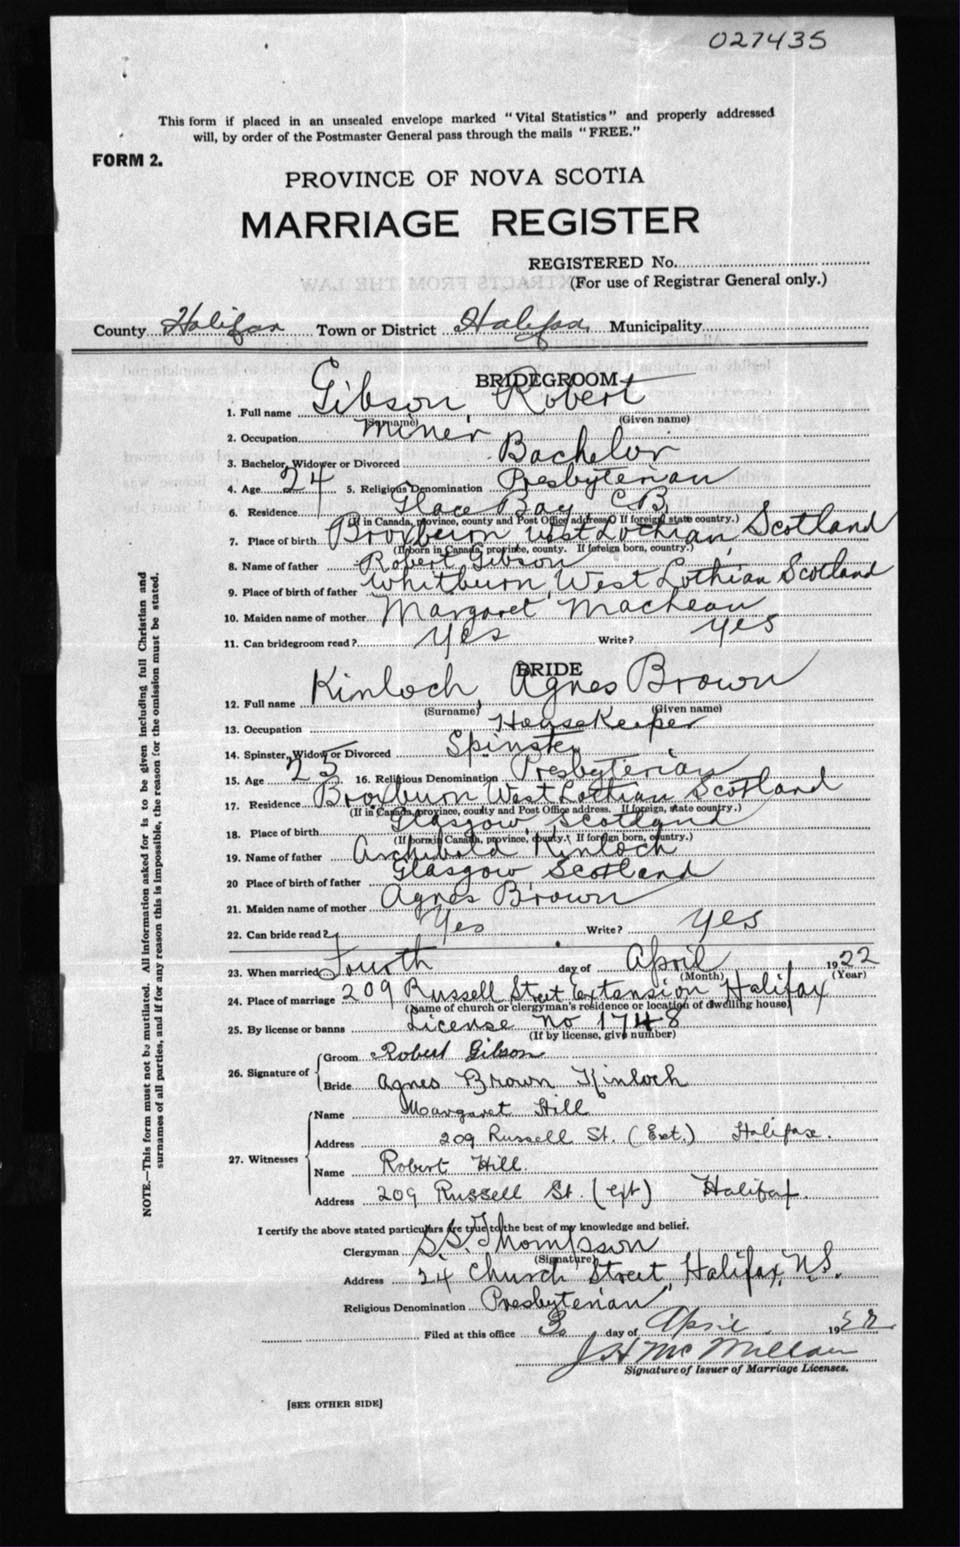 027435
This form if placed in an unsealed envelope marked "Vital Statistics" and properly addressed
will, by order of the Postmaster General pass through the mails "FREE."
FORM 2.
PROVINCE OF NOVA SCOTIA
MARRIAGE REGISTER
REGISTERED No.
(For use of Registrar General only.)
County Halifax Town or District Halifax Municipality
BRIDEGROOM
1. Full name Gibson, Robert
(Surname) (Given name)
2. Occupation Miner
3. Bachelor, Widower or Divorced Bachelor
4. Age 24 5. Religious Denomination Presbyterian
6. Residence Glace Bay C B
(If in Canada, province, county and Post Office address. If foreign, state country.)
7. Place of birth Broxburn West Lothian, Scotland
(If born in Canada, province, county. If foreign born, country.)
8. Name of father Robert Gibson
9. Place of birth of father Whitburn, West Lothian Scotland
10. Maiden name of mother Margaret Machean
11. Can bridegroom read? Yes Write? yes
BRIDE
12. Full name Kinloch, Agnes Brown
(Surname) (Given name)
13. Occupation HouseKeeper
14. Spinster, Widow or Divorced Spinster
15. Age 25 16. Religious Denomination Presbyterian
17. Residence Broxburn West Lothian Scotland
(If in Canada, province, county and Post Office address. If foreign, state country.)
18. Place of birth Glasgow, Scotland
(If born in Canada, province, county. If foreign born, country.)
19. Name of father Archibald Kinloch
20 Place of birth of father Glasgow, Scotland
21. Maiden name of mother Agnes Brown
22. Can bride read? Yes Write? yes
23. When married Fourth day of April 1922
(Month) (Year)
24. Place of marriage 209 Russell Street Extension Halifax
(Name of church or clergyman's residence or location of dwelling house)
25. By license or banns License no 1748
(If by license, give number)
26. Signature of Groom Robert Gibson
Bride Agnes Brown Kinloch
27. Witnesses Name Margaret Hill
Address 209 Russell St. (Ext.) Halifax.
Name Robert Hill.
Address 209 Russell St. (ext) Halifax.
I certify the above stated particulars are true to the best of my knowledge and belief.
Clergyman S.S. Thompson
(Signature)
Address 24 Church Street, Halifax, N.S.
Religious Denomination Presbyterian
Filed at this office 3 day of April 1922
J H McMillan
Signature of Issuer of Marriage Licenses.
[SEE OTHER SIDE]
NOTE.—This form must not be mutilated. All information asked for is to be given including full Christian and
surnames of all parties, and if for any reason this is impossible, the reason for the omission must be stated.